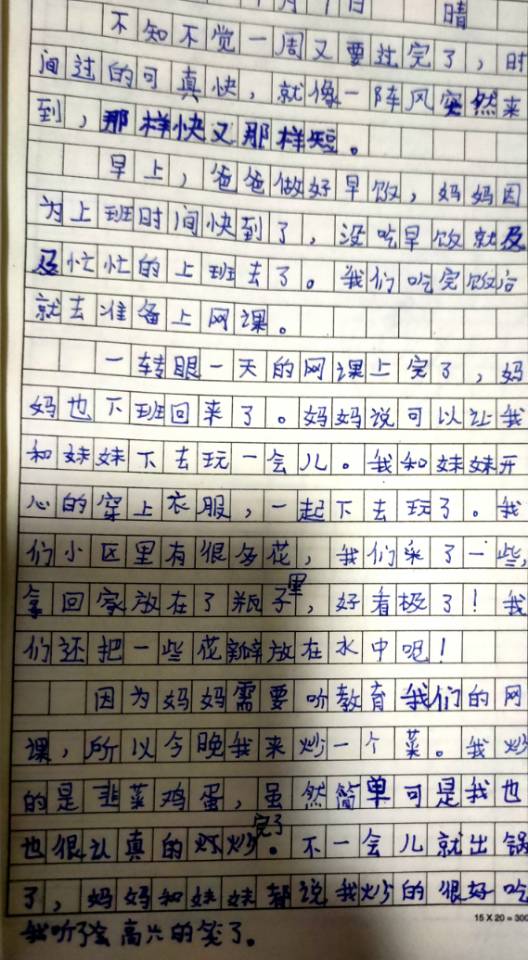 月1日 晴
不知不觉一周又要过完了，时
间过的可真快，就像一阵风突然来
到，那样快又那样短。
早上，爸爸做好早饭，妈妈因
为上班时间快到了，没吃早饭就及
及忙忙的上班去了。我们吃完饭后
就去准备上网课。
一转眼一天的网课上完了，妈
妈也下班回来了。妈妈说可以让我
和妹妹下去玩一会儿。我和妹妹开
心的穿上衣服，一起下去玩了。我
们小区里有很多花，我们采了一些，
拿回家放在了瓶子里，好看极了！我
们还把一些花瓣放在水中呢！
因为妈妈需要听教育我们的网
课，所以今晚我来炒一个菜。我炒
的是韭菜鸡蛋，虽然简单可是我也
也很认真的炒完了。不一会儿就出锅
了，妈妈和妹妹都说我炒的很好吃
我听了高兴的笑了。
15 X 20 = 300